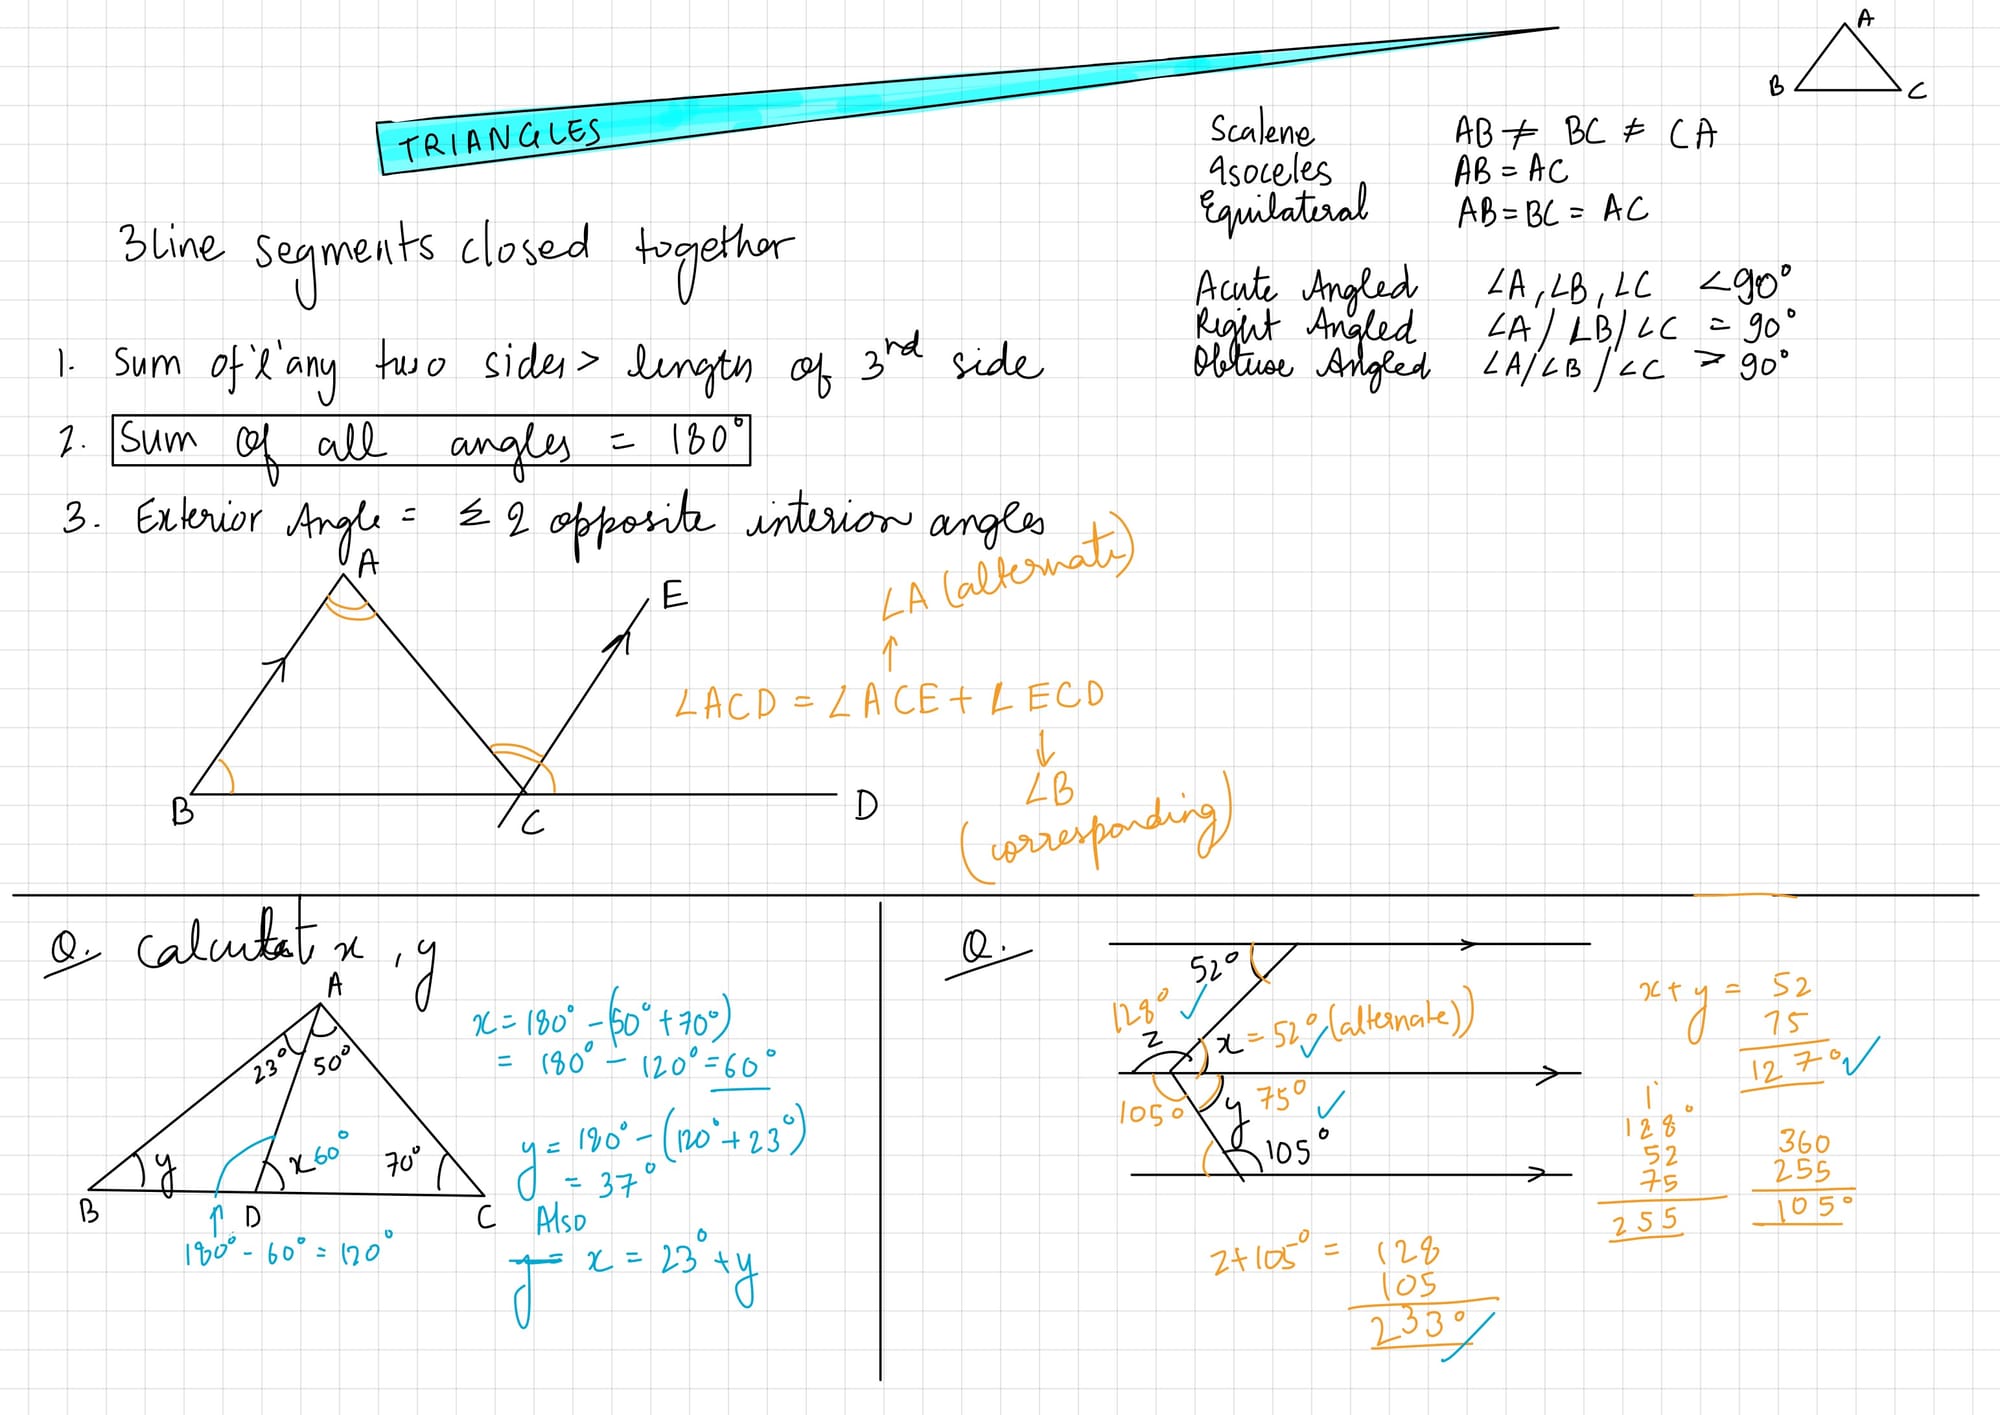 TRIANGLES
A
B C
Scalene AB ≠ BC ≠ CA
Isoceles AB = AC
Equilateral AB = BC = AC
3 Line segments closed together
Acute Angled ∠A, ∠B, ∠C < 90°
Right Angled ∠A / ∠B / ∠C = 90°
Obtuse Angled ∠A / ∠B / ∠C > 90°
1. Sum of 'l' any two sides > length of 3rd side
2. Sum of all angles = 180°
3. Exterior Angle = Σ 2 opposite interior angles
A
E
B C D
∠A (alternate)
↑
∠ACD = ∠ACE + ∠ECD
↓
∠B
(corresponding)
Q. x, y
A
23° 50°
y x 60° 70°
B D C
↑
180° - 60° = 120°
x = 180° - (50° + 70°)
= 180° - 120° = 60°
y = 180° - (120° + 23°)
= 37°
Also
x = 23° + y
Q.
52°
128° ✓
z x = 52° ✓ (alternate))
105° y 75° ✓
105°
z + 105° = 128
105
233° ✓
x + y = 52
75
127° ✓
1
128°
52
75
255
360
255
105°